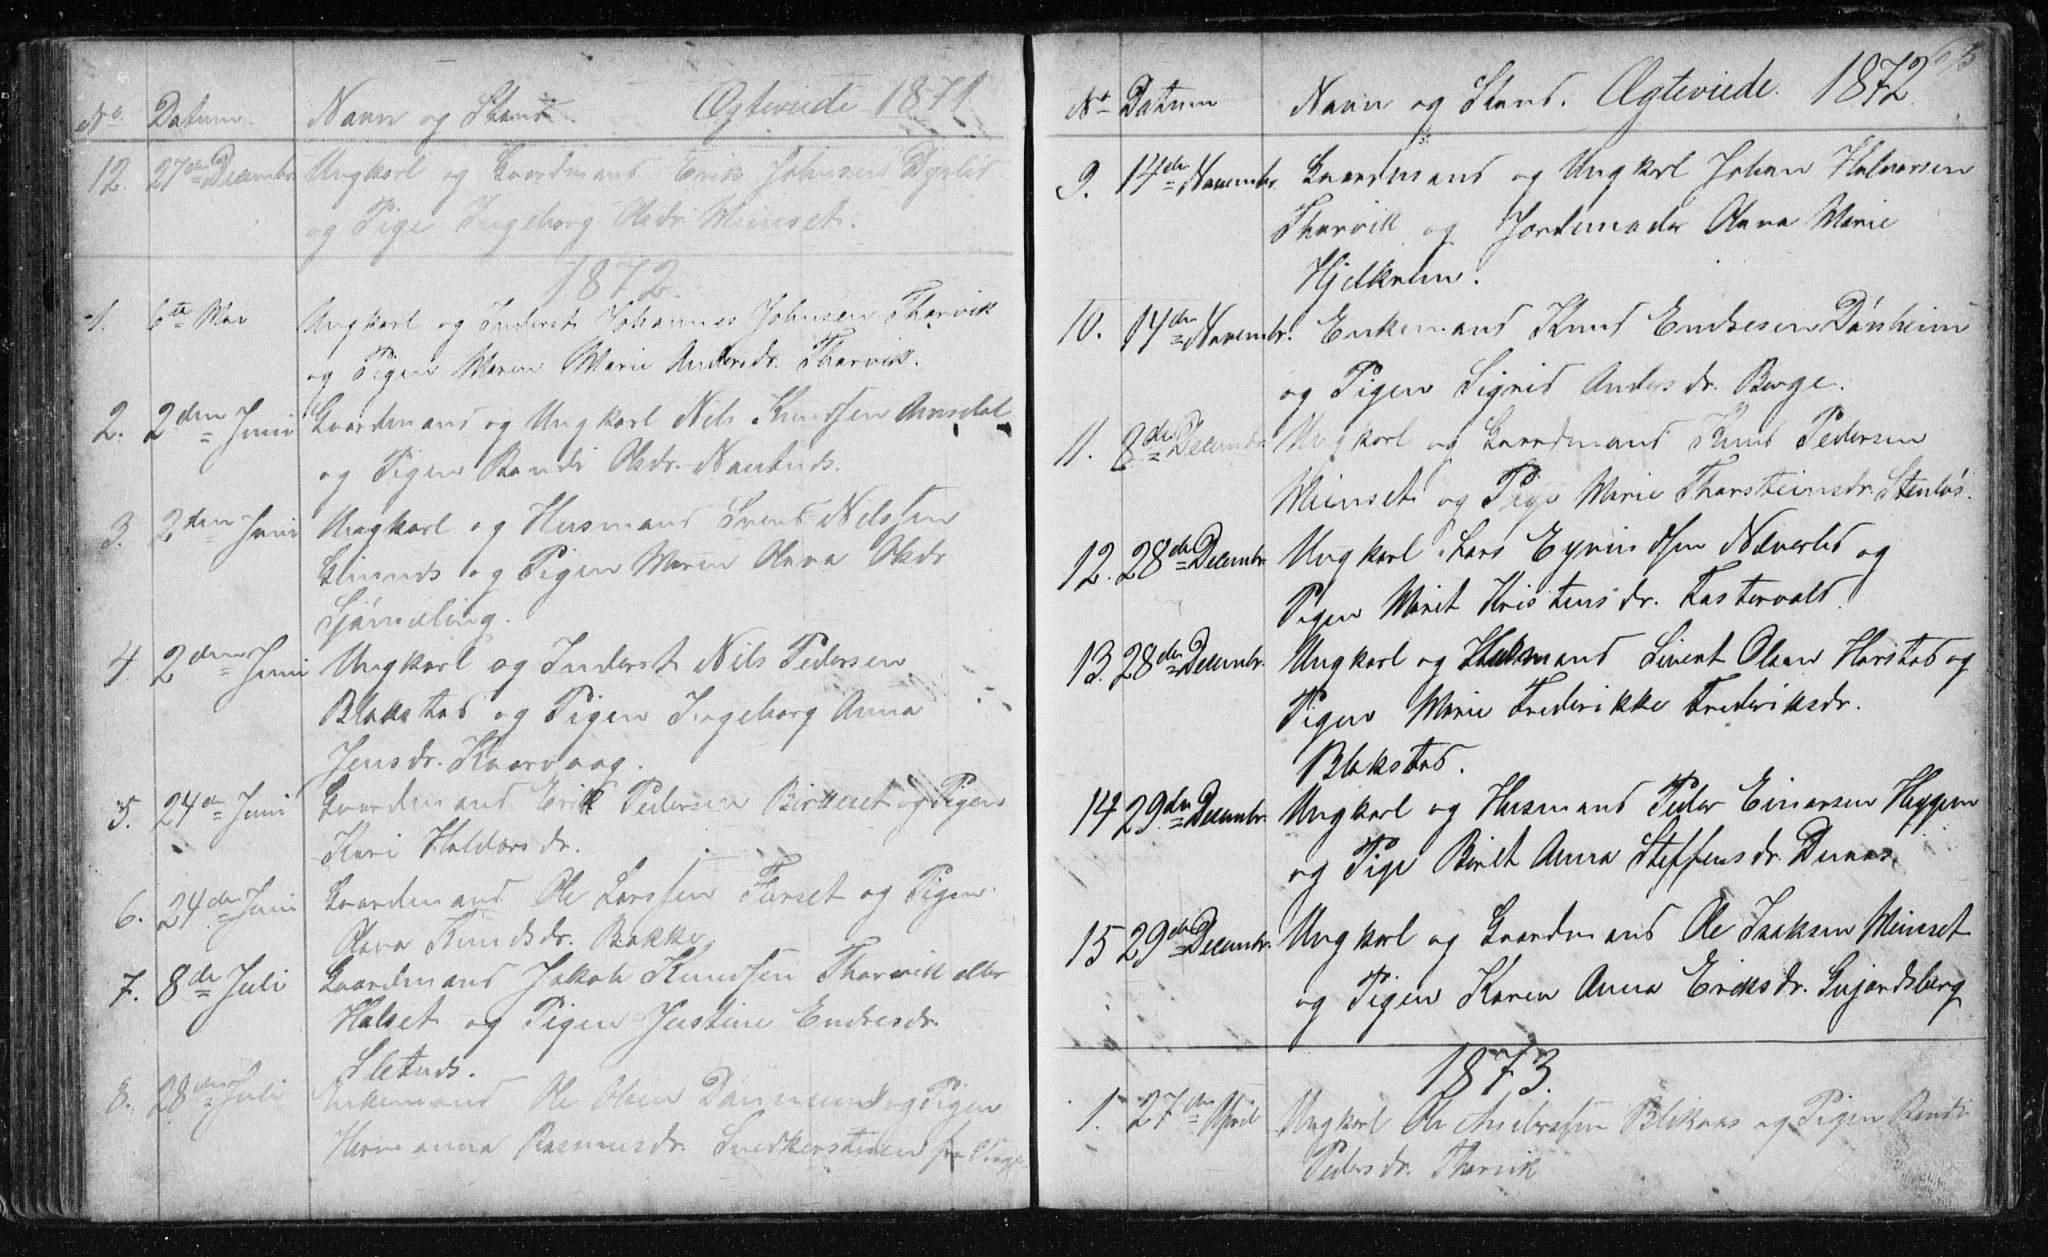 No. Datum. Navn og Stand. Ægteviede 1871
12. 27de Decembr. Ungkarl og Gaardmand Erik Johnsen Dyrlid
og Pige Ingeborg Olsdr. Meinset.
1872.
1. 6te Mai Ungkarl og Inderst Johannes Johnsen Thorvik
og Pigen Maren Marie Andersdr. Thorvik.
2. 2den Juni Gaardmand og Ungkarl Nils Knudsen
og Pigen Randi Olsdr.
3. 2den Juni Ungkarl og Husmand Svend Nilssen
og Pigen Maren Olava Olsdr
4. 2den Juni Ungkarl og Inderst Nils Pedersen
Blakstad og Pigen Ingeborg Anna
Jensdr. Kaarvaag.
5. 24de Juni Gaardmand Erik Pedersen og Pigen
Kari Haldorsdr.
6. 24de Juni Gaardmand Ole Larssen Furset og Pigen
Olava Knudsdr. Bakke
7. 8de Juli Gaardmand Jakob Knudsen Thorvik eller
Halset og Pigen Justine Endresdr.
8. 28de Juli Enkemand Ole Olsen og Pigen
Hermanna Rasmusdr. fra
No. Datum Navn og Stand. Ægteviede. 1872
9. 14de Novembr. Gaardmand og Ungkarl Johan Halvorsen
Thorvik og Jordemoder Olava Marie
Hjelkrem.
10. 14de Novembr. Enkemand Knud Endresen
og Pigen Sigrid Andersdr. Berge.
11. 8de Decembr. Ungkarl og Gaardmand Knud Pedersen
Meinset og Pige Marie Thorsteinsdr. Stenløs.
12. 28de Decembr. Ungkarl Lars Eyvindsen Næverlid og
Pigen Marit Kristensdr. Fastervold.
13. 28de Decembr. Ungkarl og Husmand Sivert Olsen Harstad og
Pigen Marie Frederikke Frederiksdr.
Blakstad.
14 29de Decembr. Ungkarl og Husmand Peder Einarsen Heggem
og Pige Beret Anna Steffensdr.
15 29de Decembr. Ungkarl og Gaardmand Ole Isaksen Meinset
og Pigen Karen Anna Eriksdr. Gnjardsberg
1873.
1. 27de April Ungkarl Ole Anderssen og Pigen Randi
Pedersdr. Thorvik